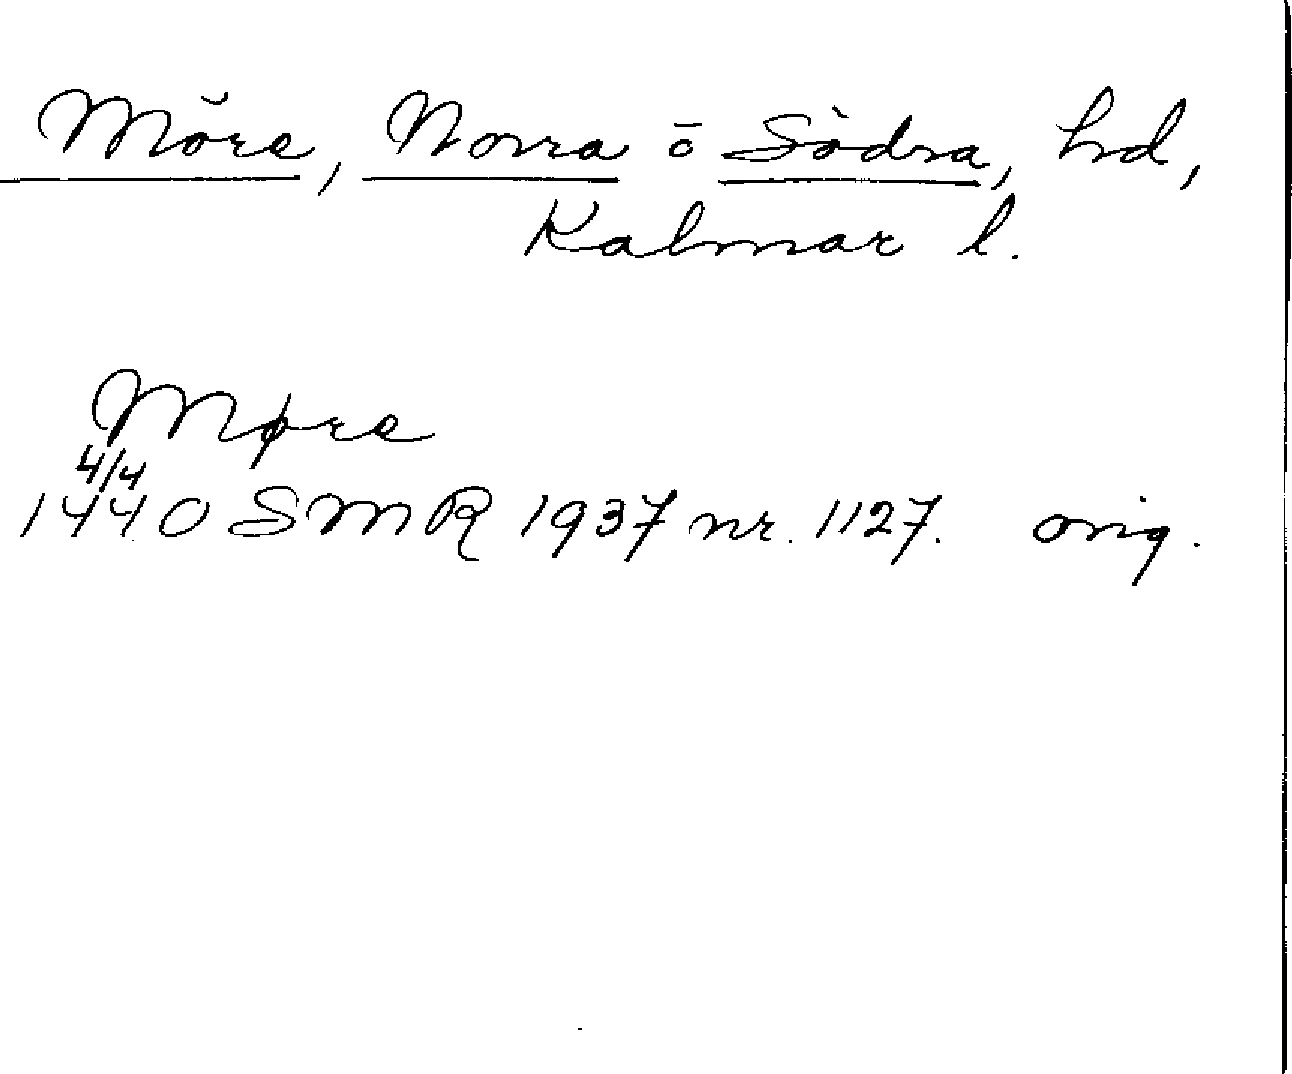 Möre, Norra ō Södra, hd,
Kalmar l.
Møre
4/4
1440 SMR 1937 nr. 1127. orig.